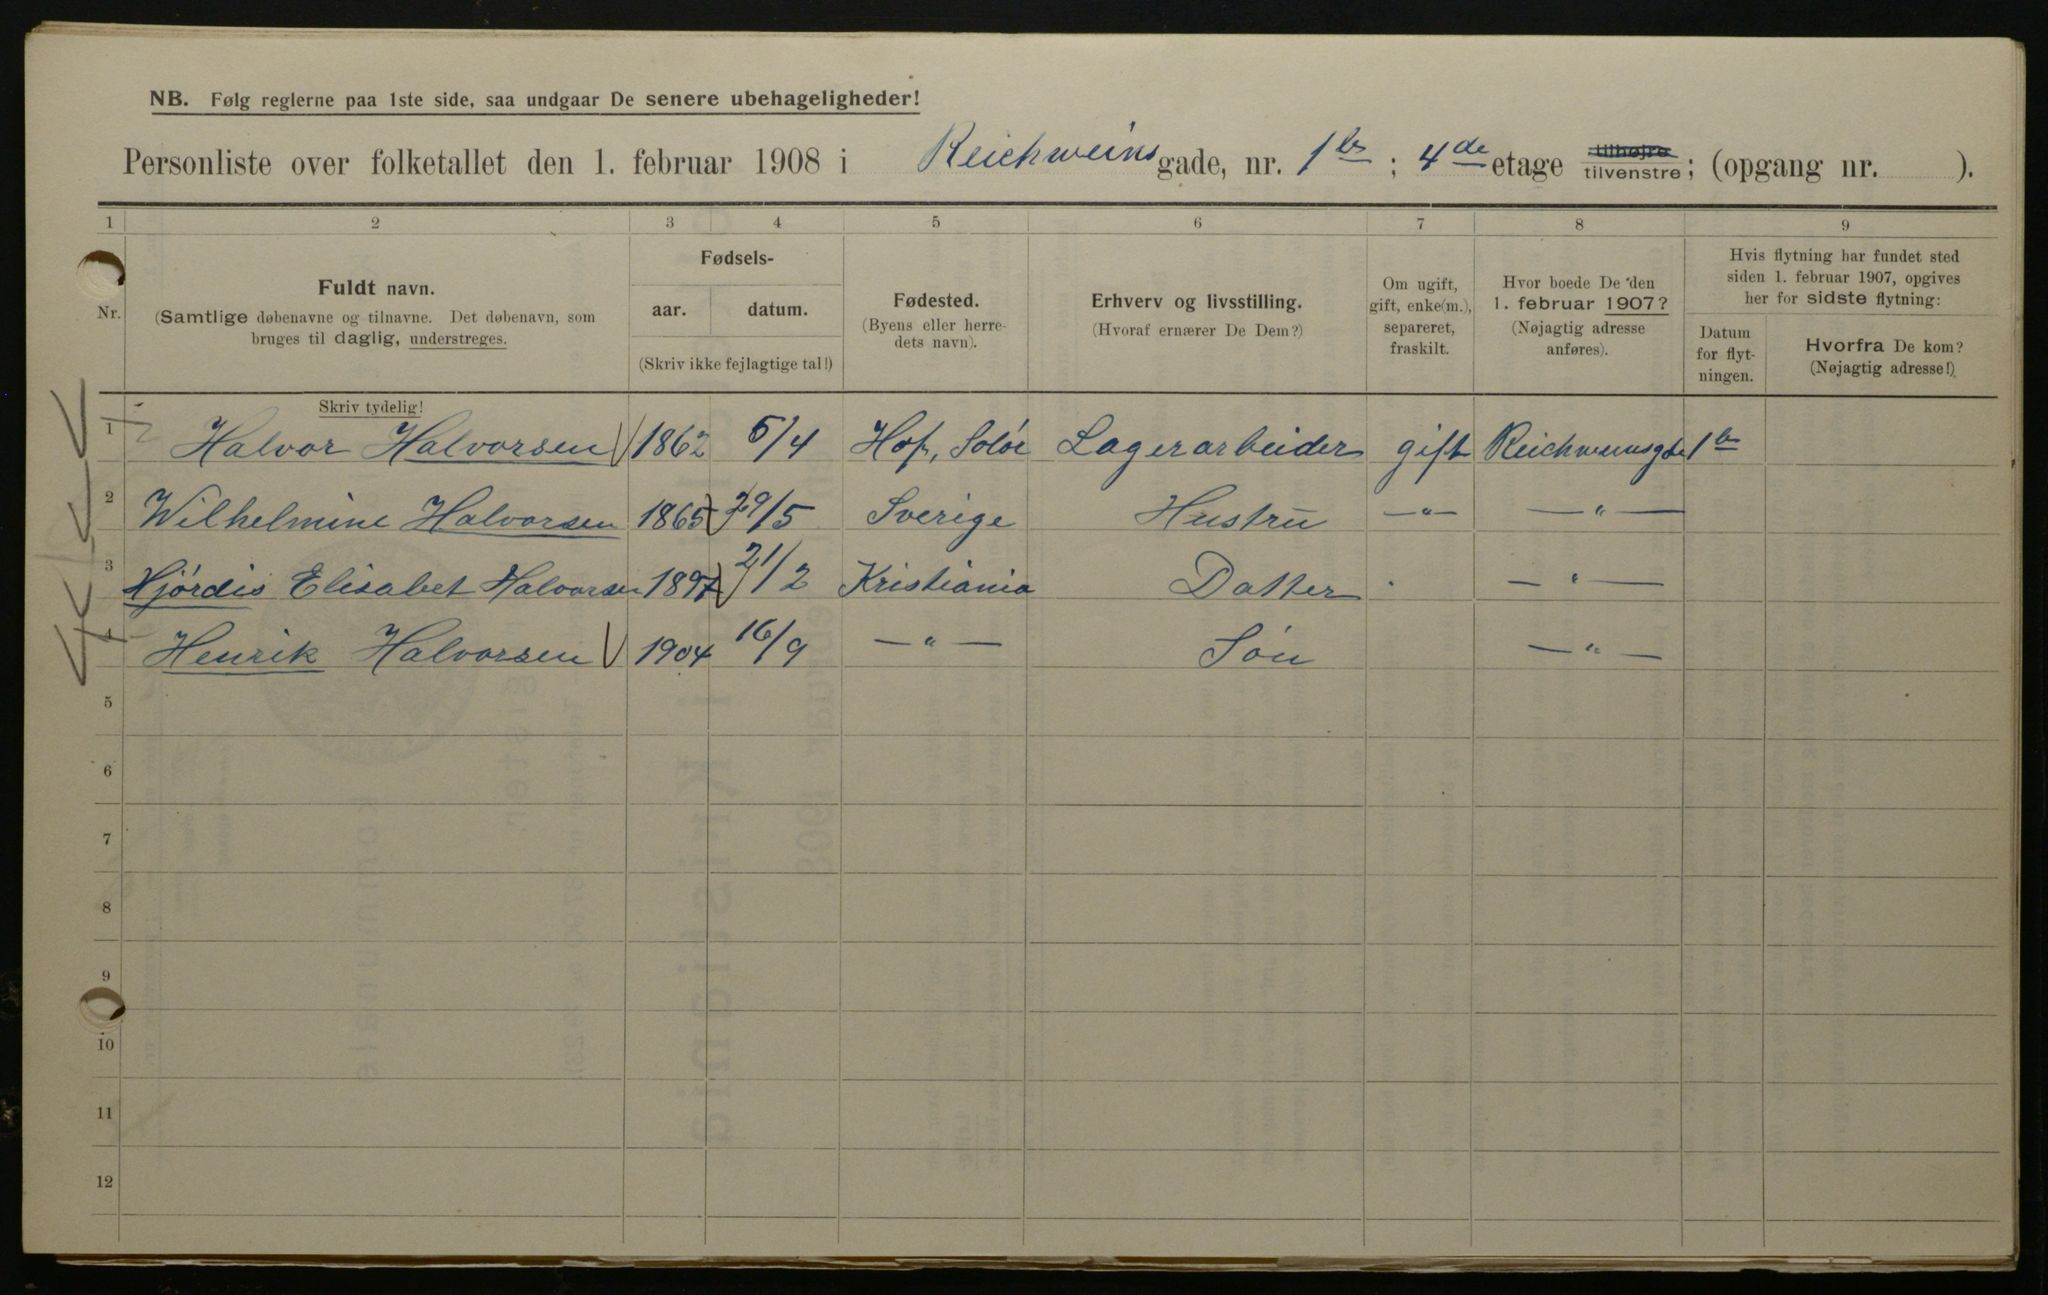 NB. Følg reglerne paa 1ste side, saa undgaar De senere ubehageligheder!
Personliste over folketallet den 1. februar 1908 i Reichweins gade, nr. 1 b ; 4de etage tilhøjre tilvenstre; (opgang nr. ).
1 2 3 4 5 6 7 8 9
Nr.
Fuldt navn.
(Samtlige døbenavne og tilnavne. Det døbenavn, som
bruges til daglig, understreges.
Skriv tydelig!
Fødsels-
aar. datum.
(Skriv ikke fejlagtige tal!)
Fødested.
(Byens eller herre-
dets navn).
Erhverv og livsstilling.
(Hvoraf ernærer De Dem?)
Om ugift,
gift, enke(m.),
separeret,
fraskilt.
Hvor boede De den
1. februar 1907?
(Nøjagtig adresse
anføres).
Hvis flytning har fundet sted
siden 1. februar 1907, opgives
her for sidste flytning:
Datum
for flyt-
ningen.
Hvorfra De kom?
(Nøjagtig adresse!)
1 Halvor Halvorsen 1862 5/4 Hof, Solör Lagerarbeider gift Reichweinsgde 1 b
2 Wilhelmine Halvorsen 1865 29/5 Sverige Hustru —"— —"—
3 Hjørdis Elisabet Halvorsen 1897 21/2 Kristiania Datter —"—
4 Henrik Halvorsen 1904 16/9 —"— Søn —"—
5
6
7
8
9
10
11
12